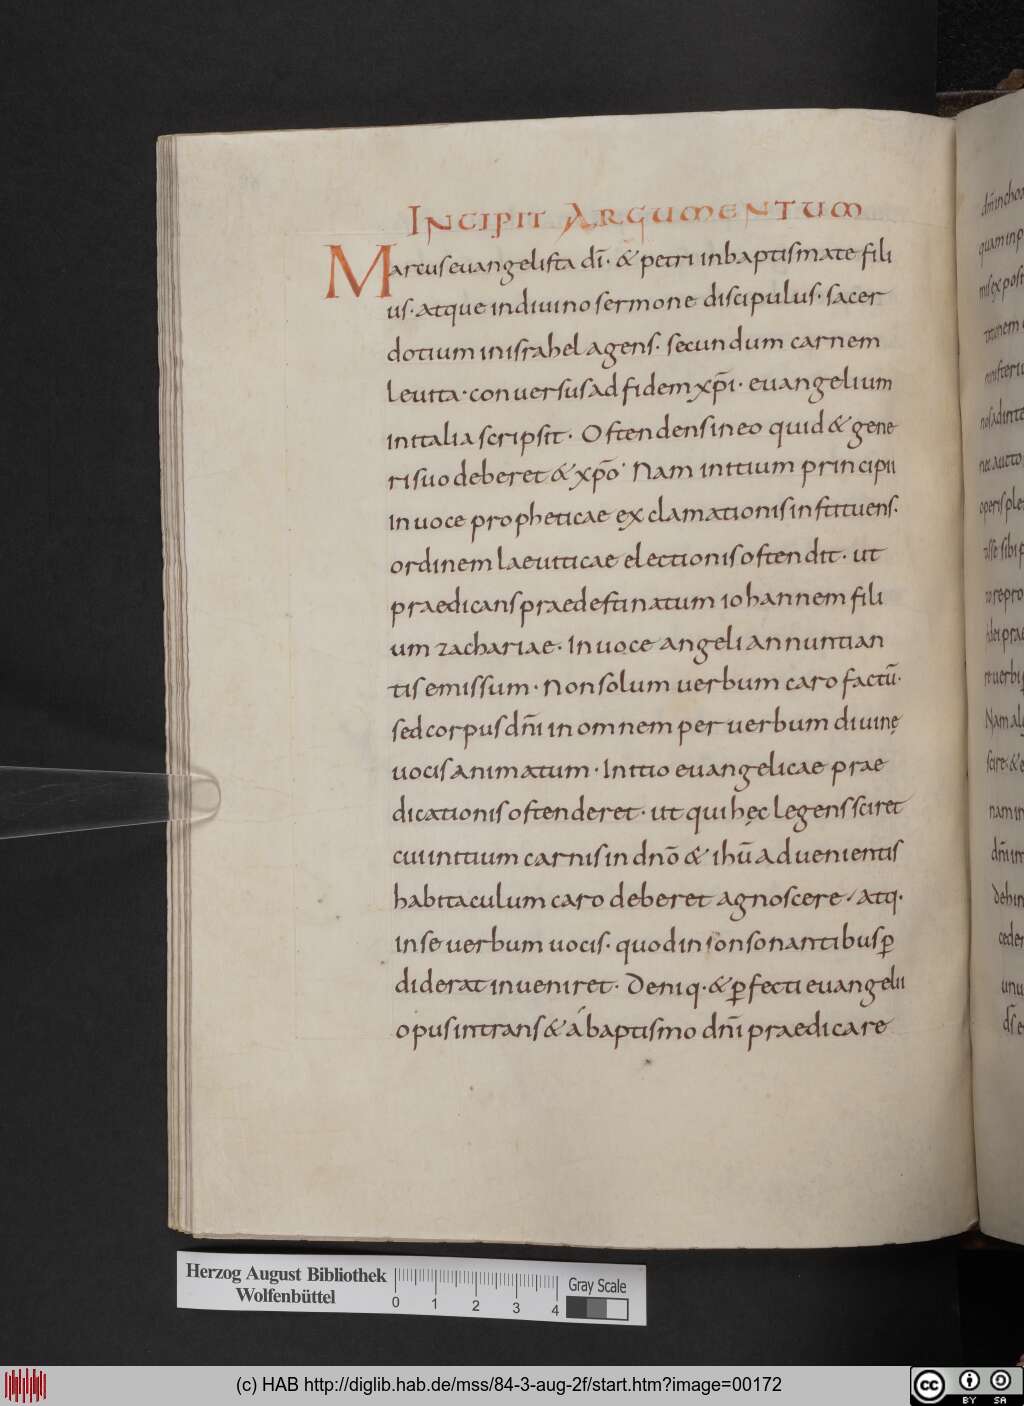 INCIPIT ARGUMENTUM
Marcus euangelista dī· & petri in baptismate fili
us· atque in diuino sermone discipulus· sacer
dotium in israhel agens· secundum carnem
leuita· conuersus ad fidem xp̄i· euangelium
in italia scripsit· Ostendens in eo quid & gene
ri suo deberet & xp̄o· Nam initium principii
In uoce propheticae exclamationis instituens·
ordinem laeuiticae electionis ostendit· ut
praedicans praedestinatum iohannem fili
um zachariae· In uoce angeli annuntian
tis emissum· Non solum uerbum caro factū·
sed corpus dn̄i in omnem per uerbum diuinę
uocis animatum· Initio euangelicae prae
dicationis ostenderet· ut qui hęc legens sciret
cui initium carnis in dn̄o & ihū aduenientis
habitaculum caro deberet agnoscere· atq·
in se uerbum uocis· quod in consonantibus p̱
diderat inueniret· Deniq· & p̱fecti euangelii
opus intrans & a baptismo dn̄i praedicare
dn̄m inchoa
quam in p
mis expos
nos ad inte
nec aucto
operis ple
asse sibi p
to repro
fidei prae
re uerbi
Nam al
scire· & e
nam in
dn̄i im
dehin
ceder
unu
ds̄ e
Herzog August Bibliothek
Wolfenbüttel
0 1 2 3 4
Gray Scale
(c) HAB http://diglib.hab.de/mss/84-3-aug-2f/start.htm?image=00172
cc BY SA